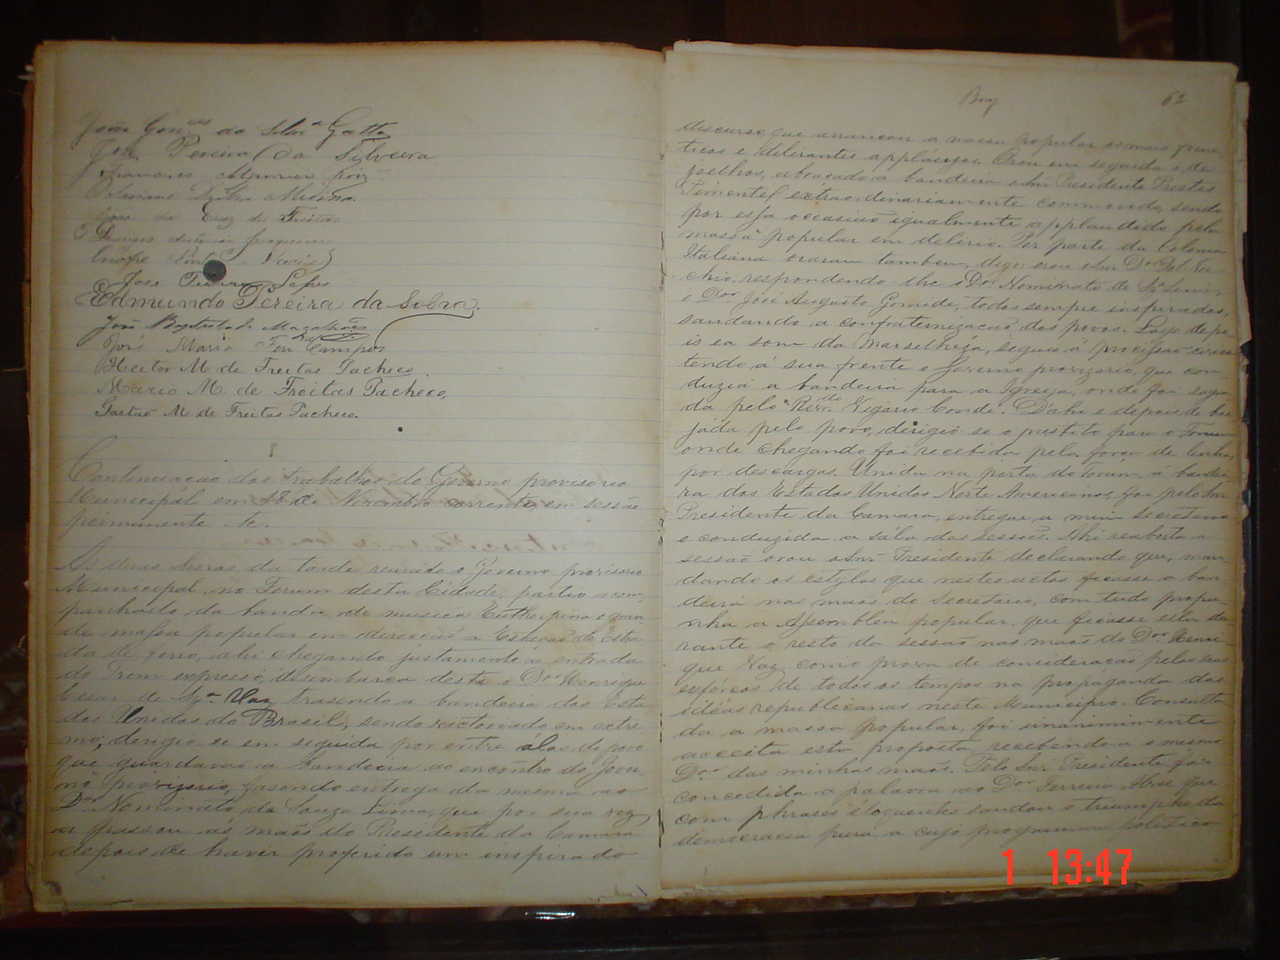 João Gon.des da Silva Gatto
José Pereira da Silveira
João da Cruz de Freitas
Domingos Antonio
José Lopes
Edmundo Pereira da Silva.
João Baptista de Magalhães
José Maria Campos
Heitor M. de Freitas Pacheco.
Mario M. de Freitas Pacheco,
Gastão M. de Freitas Pacheco.
Continuação dos trabalhos do Governo provisorio
Municipal em 18 de Novembro corrente em sessão
permanente etc.
As duas horas da tarde reunido o Governo provisorio
Municipal, no Forum desta Cidade, partio acom-
panhado da banda de musica Eutherpina e gran-
de massa popular em direcção a Estação de Estra-
da de ferro, ahi chegando justamente á entrada
do Trem expresso, desembarca deste o Dor Henrique
Cesar de Sza Vaz trasendo a bandeira dos Esta-
dos Unidos do Brasil, sendo victoriado em extre-
mo; derigio-se em seguida por entre álas do povo
que guardavão a bandeira ao encontro do Gover-
no provizorio, fasendo entrega da mesma ao
Dor Nominato de Souza Lima, que por sua vez
a passou ás maõs do Presidente da Camara
depois de haver proferido um inspirado
Braz 62
discurso, que arrancou a massa popular os mais frene-
ticos e delirantes applausos. Orou em seguida e de
joelhos, abraçado a bandeira o Snr Presidente Prestes
Pimentel extraordinariamente commovido, sendo
por essa occasião igualmente applaudido pela
massa popular em delirio. Por parte da Colonia
Italiana oraram tambem, digo orou o Snr Dor Del Vec-
chio, respondendo-lhe o Dor Nominato de Sza Lima,
e Dor José Augusto Gomide, todos sempre inspirados,
saudando a confraternização dos povos. Logo depo-
is ao som da Marselheza, seguio a procissão civica
tendo á sua frente o Governo provizorio, que con-
duzia a bandeira para a Igreja, onde foi sagra-
da pelo Revdo Vigario Conde. Dahi e depois de bei-
jada pelo povo, derigio-se o prestito para o Forum
onde chegando foi recebida pela força de linha,
por descargas. Unida na porta do Forum, á bandei-
ra dos Estados Unidos Norte Americanos, foi pelo Snr
Presidente da Camara, entregue, a mim Secretario
e conduzida a sala das sessões. Ahi reaberta a
sessão orou o Snr Presidente declarando que, man-
dando os estylos que nestes actos ficasse a ban-
deira nas maõs do Secretario, com tudo propu-
nha a Assembléa popular que ficasse ella du-
rante o resto da sessão nas maõs do Dor Henri-
que Vaz como prova de consideração pelos seus
exforços de todos os tempos na propaganda das
idéas republicanas neste Municipio. Consulta-
da a massa popular, foi unanimimente
acceita esta proposta, recebendo-a o mesmo
Dor das minhas maõs. Pelo Snr Presidente foi
concedida a palavra ao Dor Ferreira Alves que
com phrases eloquentes saudou o triumpho da
democracia pura, a cujo programma politico
1 13:47